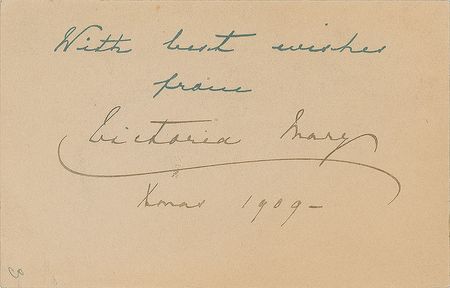 With best wishes
from
Victoria Mary
Xmas 1909–